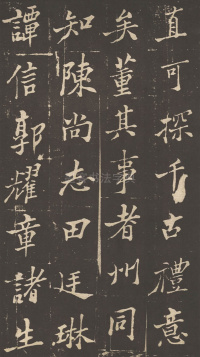 直可探千古禮意
矣董其事者州同
知陳尚志田廷琳
譚信郭耀章諸生